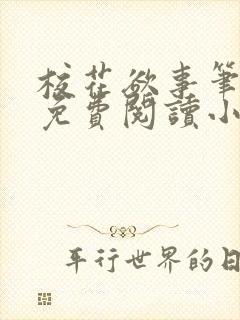 校花欲事筆
免費閱讀小
平行世界的日